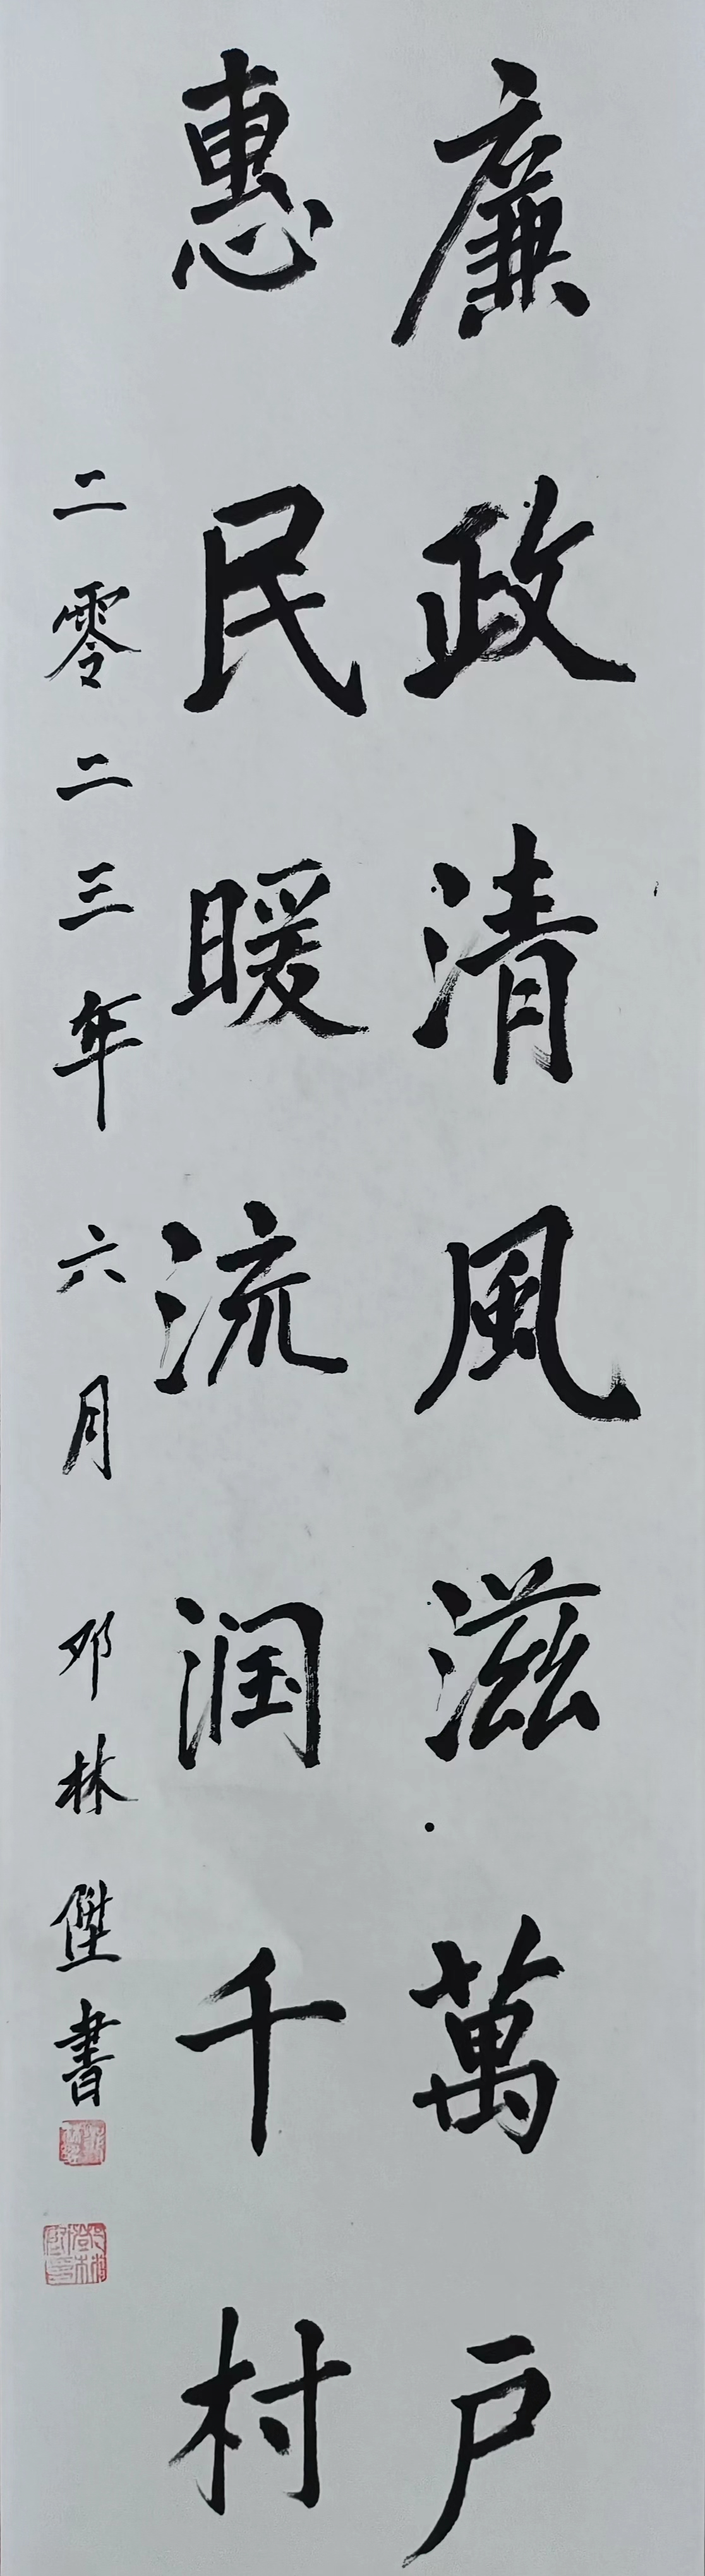 廉政清風滋萬户
惠民暖流润千村
二零二三年六月 邓林傑書